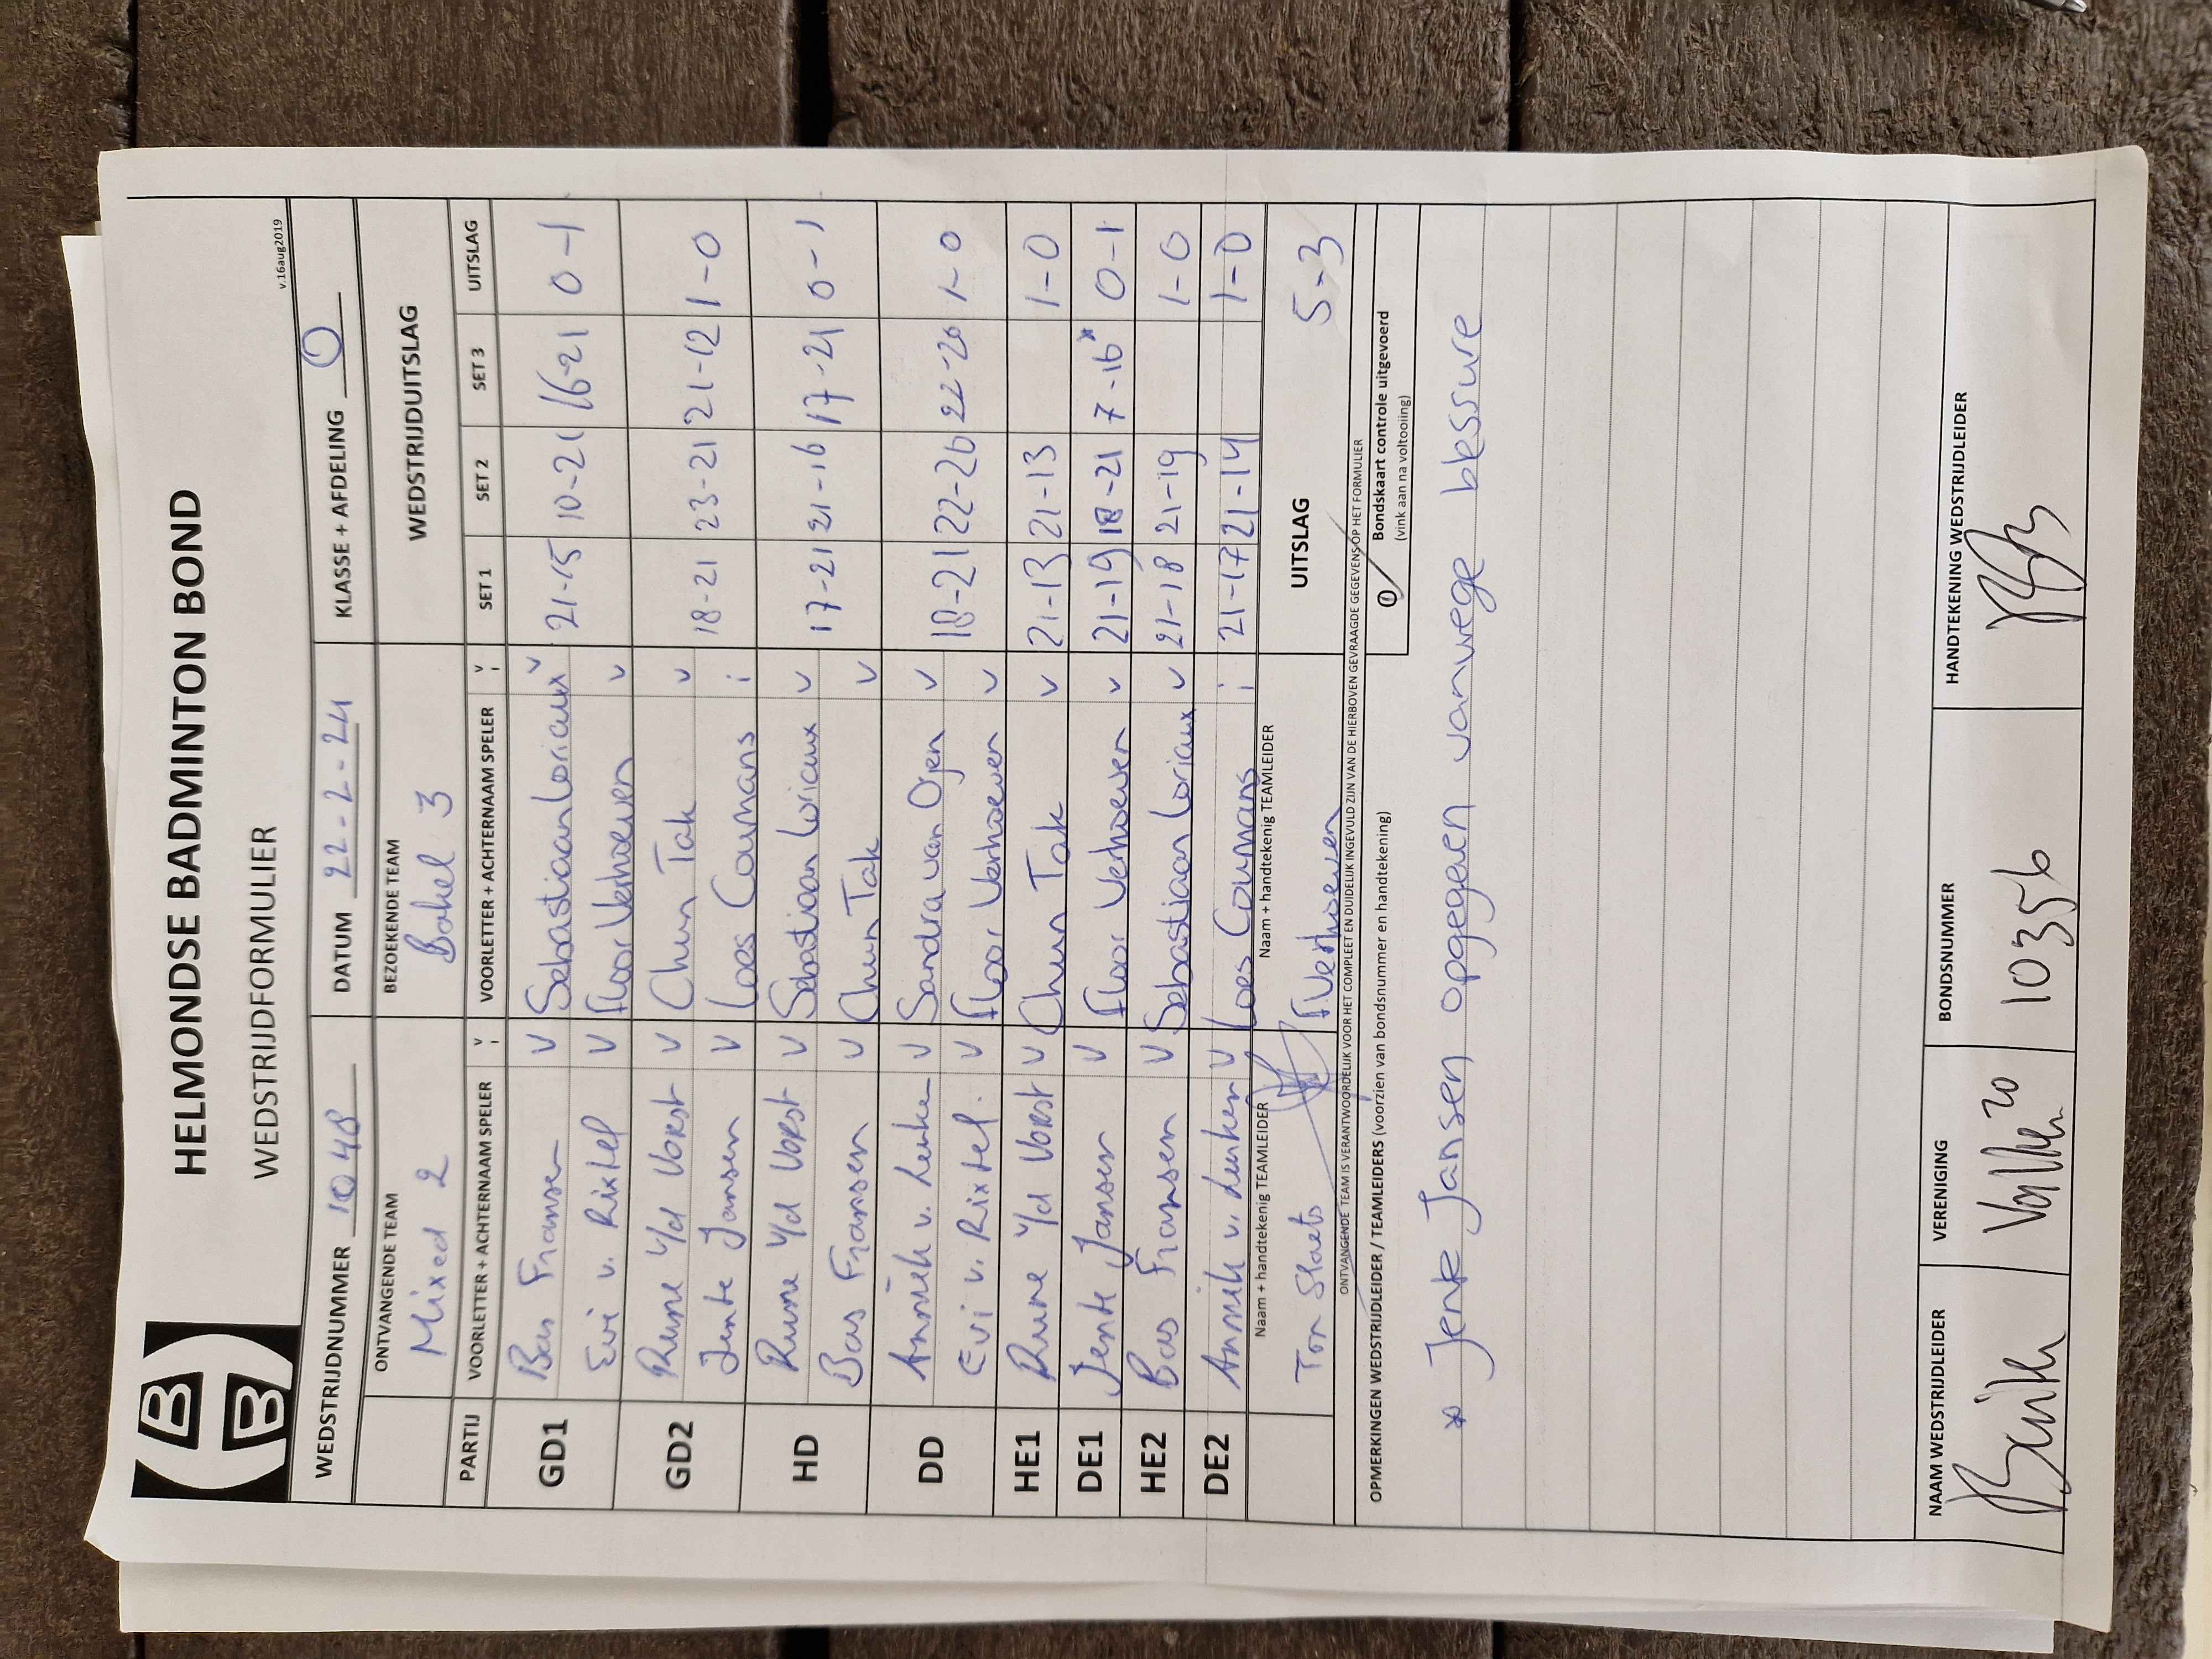 HELMONDSE BADMINTON BOND
WEDSTRIJDFORMULIER
v.16aug2019
WEDSTRIJDNUMMER 1048 DATUM 22-2-24 KLASSE + AFDELING O
ONTVANGENDE TEAM BEZOEKENDE TEAM WEDSTRIJDUITSLAG
Mixed 2 Bakel 3
PARTIJ VOORLETTER + ACHTERNAAM SPELER v i VOORLETTER + ACHTERNAAM SPELER v i SET 1 SET 2 SET 3 UITSLAG
GD1 Bas Fransen v Sebastiaan Loriaux v 21-15 10-21 16-21 0-1
Evi v. Rixtel v Floor Verhoeven v
GD2 Rune v/d Vorst v Chun Tak v 18-21 23-21 21-12 1-0
Jente Jansen v Loes Coumans i
HD Rune v/d Vorst v Sebastiaan Loriaux v 17-21 21-16 17-21 0-1
Bas Fransen v Chun Tak v
DD Anniek v. Lenken v Sandra van Ojen v 18-21 22-20 22-20 1-0
Evi v. Rixtel. v Floor Verhoeven v
HE1 Rune v/d Vorst v Chun Tak v 21-13 21-13 1-0
DE1 Jente Jansen v Floor Verhoeven v 21-19 18-21 7-16* 0-1
HE2 Bas Fransen v Sebastiaan Loriaux v 21-18 21-19 1-0
DE2 Anniek v. Lenken v Loes Coumans i 21-17 21-14 1-0
Naam + handtekenig TEAMLEIDER Naam + handtekenig TEAMLEIDER UITSLAG 5-3
Ton Slaets FVerhoeven
ONTVANGENDE TEAM IS VERANTWOORDELIJK VOOR HET COMPLEET EN DUIDELIJK INGEVULD ZIJN VAN DE HIERBOVEN GEVRAAGDE GEGEVENS OP HET FORMULIER
OPMERKINGEN WEDSTRIJDLEIDER / TEAMLEIDERS (voorzien van bondsnummer en handtekening)
Bondskaart controle uitgevoerd
(vink aan na voltooiing)
* Jente Jansen opgegeven vanwege blessure
NAAM WEDSTRIJDLEIDER VERENIGING BONDSNUMMER HANDTEKENING WEDSTRIJDLEIDER
10356